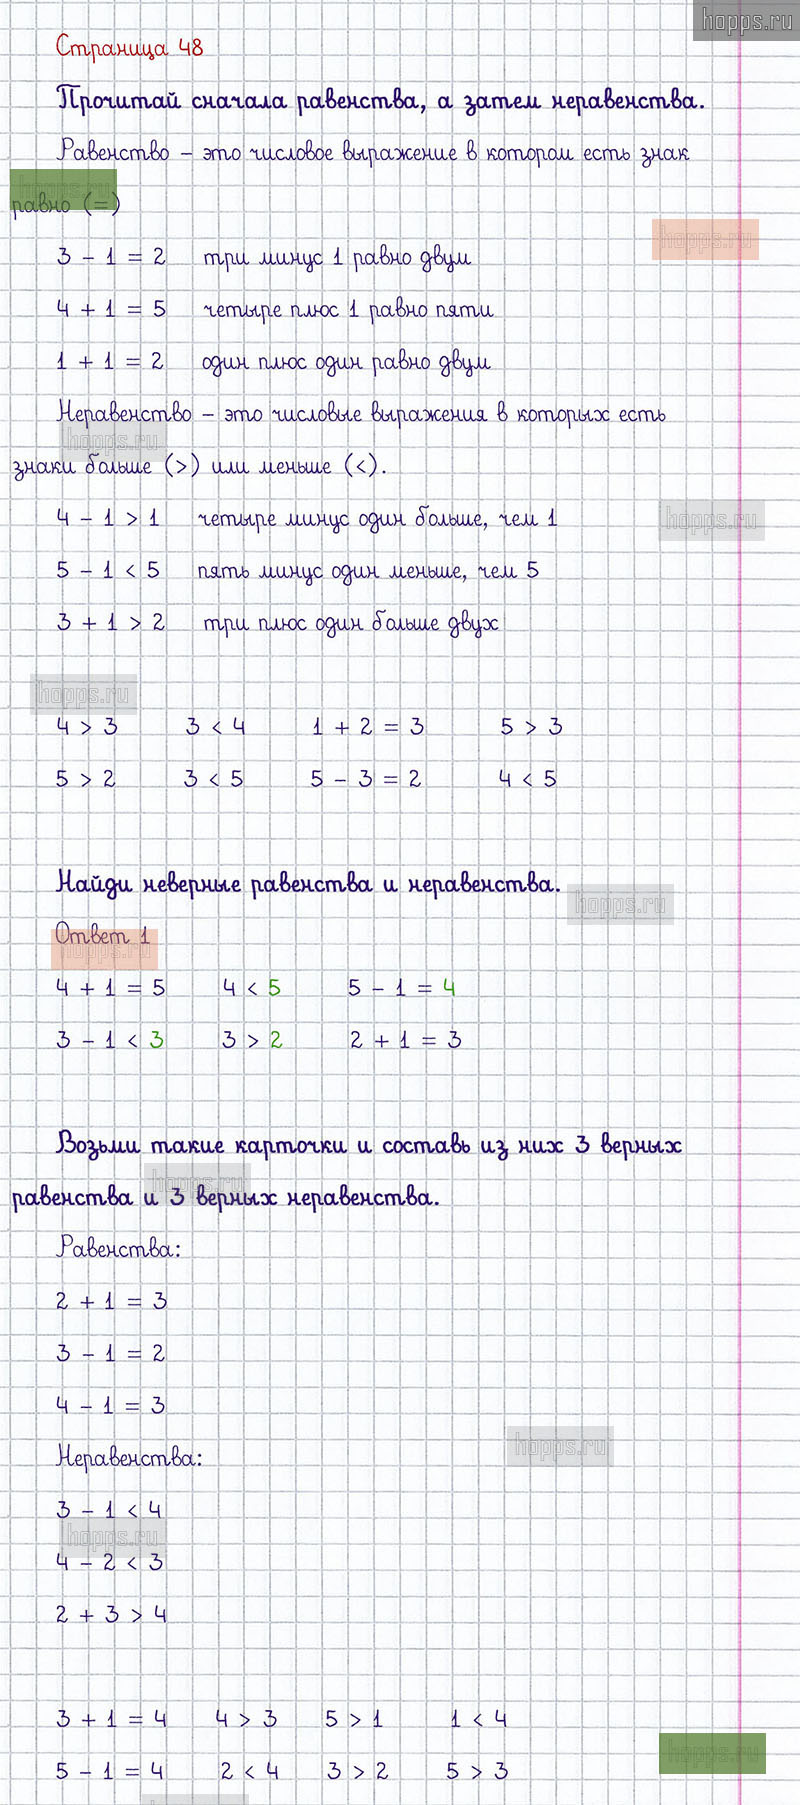 hopps.ru
Страница 48
Прочитай сначала равенства, а затем неравенства.
Равенство – это числовое выражение в котором есть знак
hopps.ru
равно (=)
hopps.ru
3 – 1 = 2 три минус 1 равно двум
4 + 1 = 5 четыре плюс 1 равно пяти
1 + 1 = 2 один плюс один равно двум
Неравенство – это числовые выражения в которых есть
hopps.ru
знаки больше (>) или меньше (<).
4 – 1 > 1 четыре минус один больше, чем 1
hopps.ru
5 – 1 < 5 пять минус один меньше, чем 5
3 + 1 > 2 три плюс один больше двух
hopps.ru
4 > 3 3 < 4 1 + 2 = 3 5 > 3
5 > 2 3 < 5 5 – 3 = 2 4 < 5
Найди неверные равенства и неравенства.
hopps.ru
Ответ 1
hopps.ru
4 + 1 = 5 4 < 5 5 – 1 = 4
3 – 1 < 3 3 > 2 2 + 1 = 3
Возьми такие карточки и составь из них 3 верных
hopps.ru
равенства и 3 верных неравенства.
Равенства:
2 + 1 = 3
3 – 1 = 2
4 – 1 = 3
hopps.ru
Неравенства:
3 – 1 < 4
hopps.ru
4 – 2 < 3
2 + 3 > 4
3 + 1 = 4 4 > 3 5 > 1 1 < 4
hopps.ru
5 – 1 = 4 2 < 4 3 > 2 5 > 3